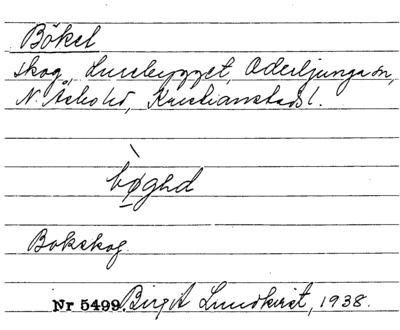 Bökel
skog, Lursbygget, Oderljunga sn,
N. Åsbo hd, Kristianstads l.
bøghd
Bokskog.
Nr 5499. Birgit Lundkvist, 1938.